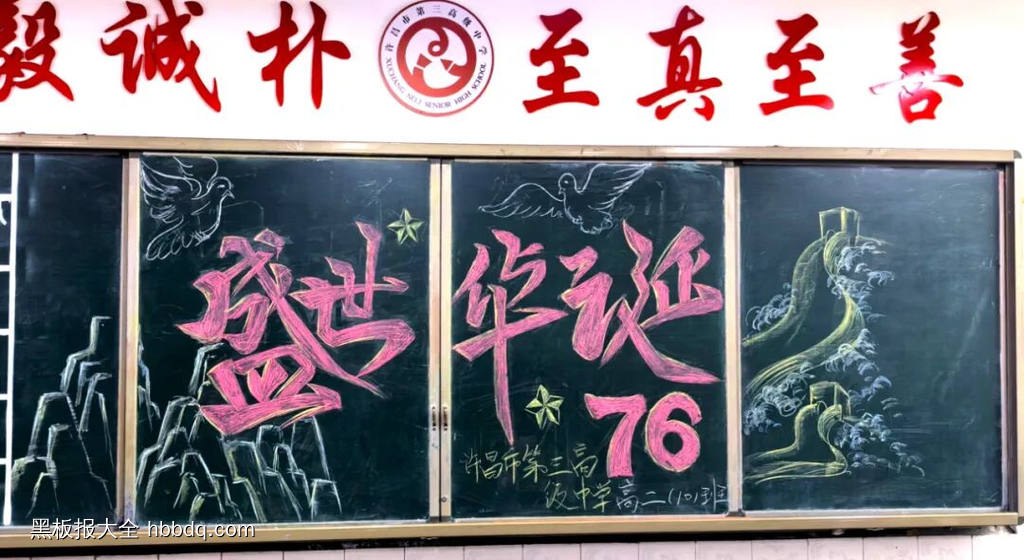 毅 诚 朴
许昌市第三高级中学
XUCHANG NO.3 SENIOR HIGH SCHOOL
至 真 至 善
盛世华诞
76
许昌市第三高
级中学高二(10)班
黑板报大全 hbbdq.com